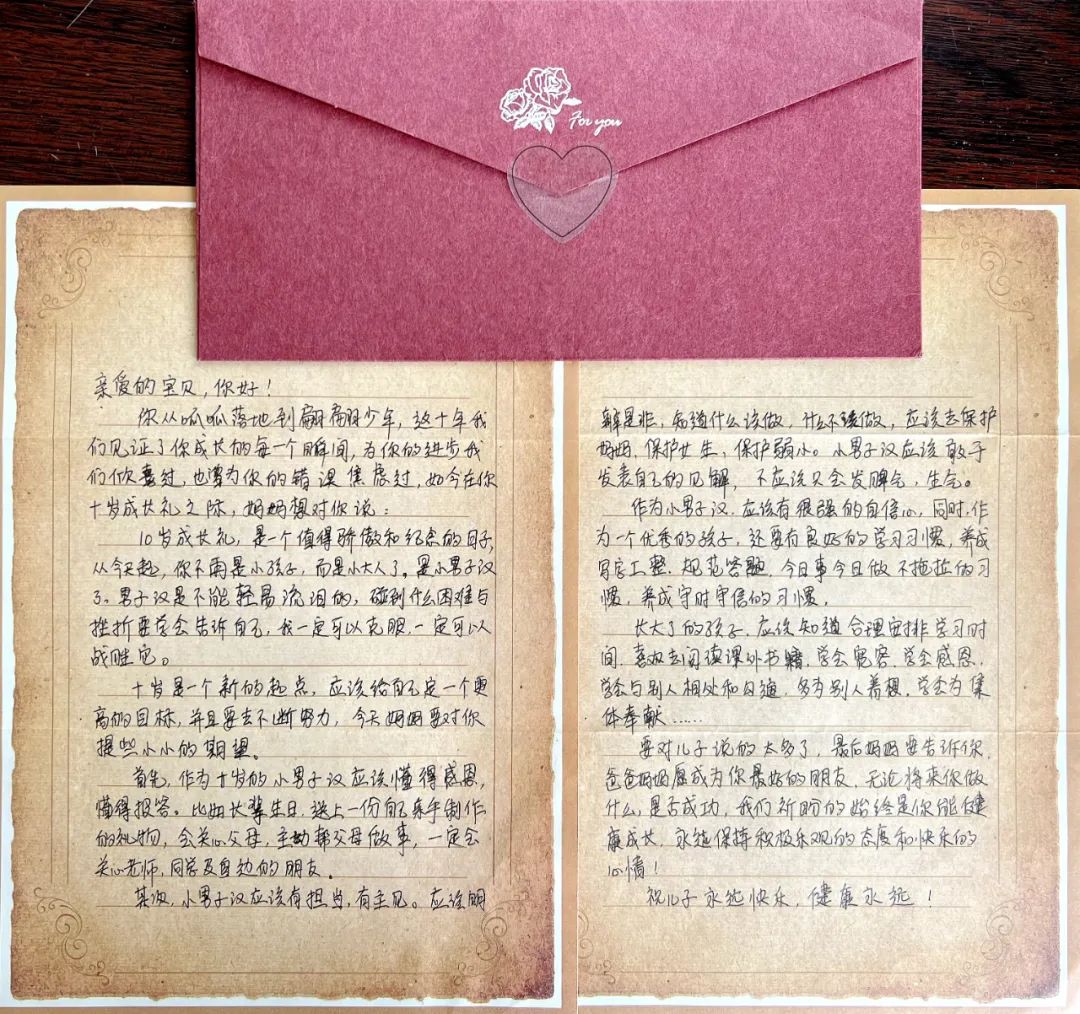 For you
亲爱的宝贝,你好!
你从呱呱落地到翩翩少年,这十年我
们见证了你成长的每一个瞬间,为你的进步我
们欣喜过,也曾为你的错误焦虑过,如今在你
十岁成长礼之际,妈妈想对你说:
10岁成长礼,是一个值得骄傲和纪念的日子,
从今天起,你不再是小孩子,而是小大人了。是小男子汉
了。男子汉是不能轻易流泪的,碰到什么困难与
挫折要学会告诉自己,我一定可以克服,一定可以
战胜它。
十岁是一个新的起点,应该给自己定一个更
高的目标,并且要去不断努力,今天妈妈要对你
提些小小的期望。
首先,作为十岁的小男子汉应该懂得感恩,
懂得报答。比如长辈生日,送上一份自己亲手制作
的礼物,会关心父母,主动帮父母做事,一定会
关心老师,同学及身边的朋友。
其次,小男子汉应该有担当,有主见。应该明
辨是非,知道什么该做,什么不该做,应该去保护
妈妈,保护女生,保护弱小。小男子汉应该敢于
发表自己的见解,不应该只会发脾气,生气。
作为小男子汉,应该有很强的自信心,同时,作
为一个优秀的孩子,还要有良好的学习习惯,养成
写字工整,规范答题,今日事今日做不拖拉的习
惯,养成守时守信的习惯,
长大了的孩子,应该知道合理安排学习时
间,喜欢去阅读课外书籍,学会宽容,学会感恩,
学会与别人相处和沟通,多为别人着想,学会为集
体奉献……
要对儿子说的太多了,最后妈妈要告诉你,
爸爸妈妈愿成为你最好的朋友,无论将来你做
什么,是否成功,我们祈盼的始终是你能健
康成长,永远保持积极乐观的态度和快乐的
心情!
祝儿子永远快乐,健康永远!